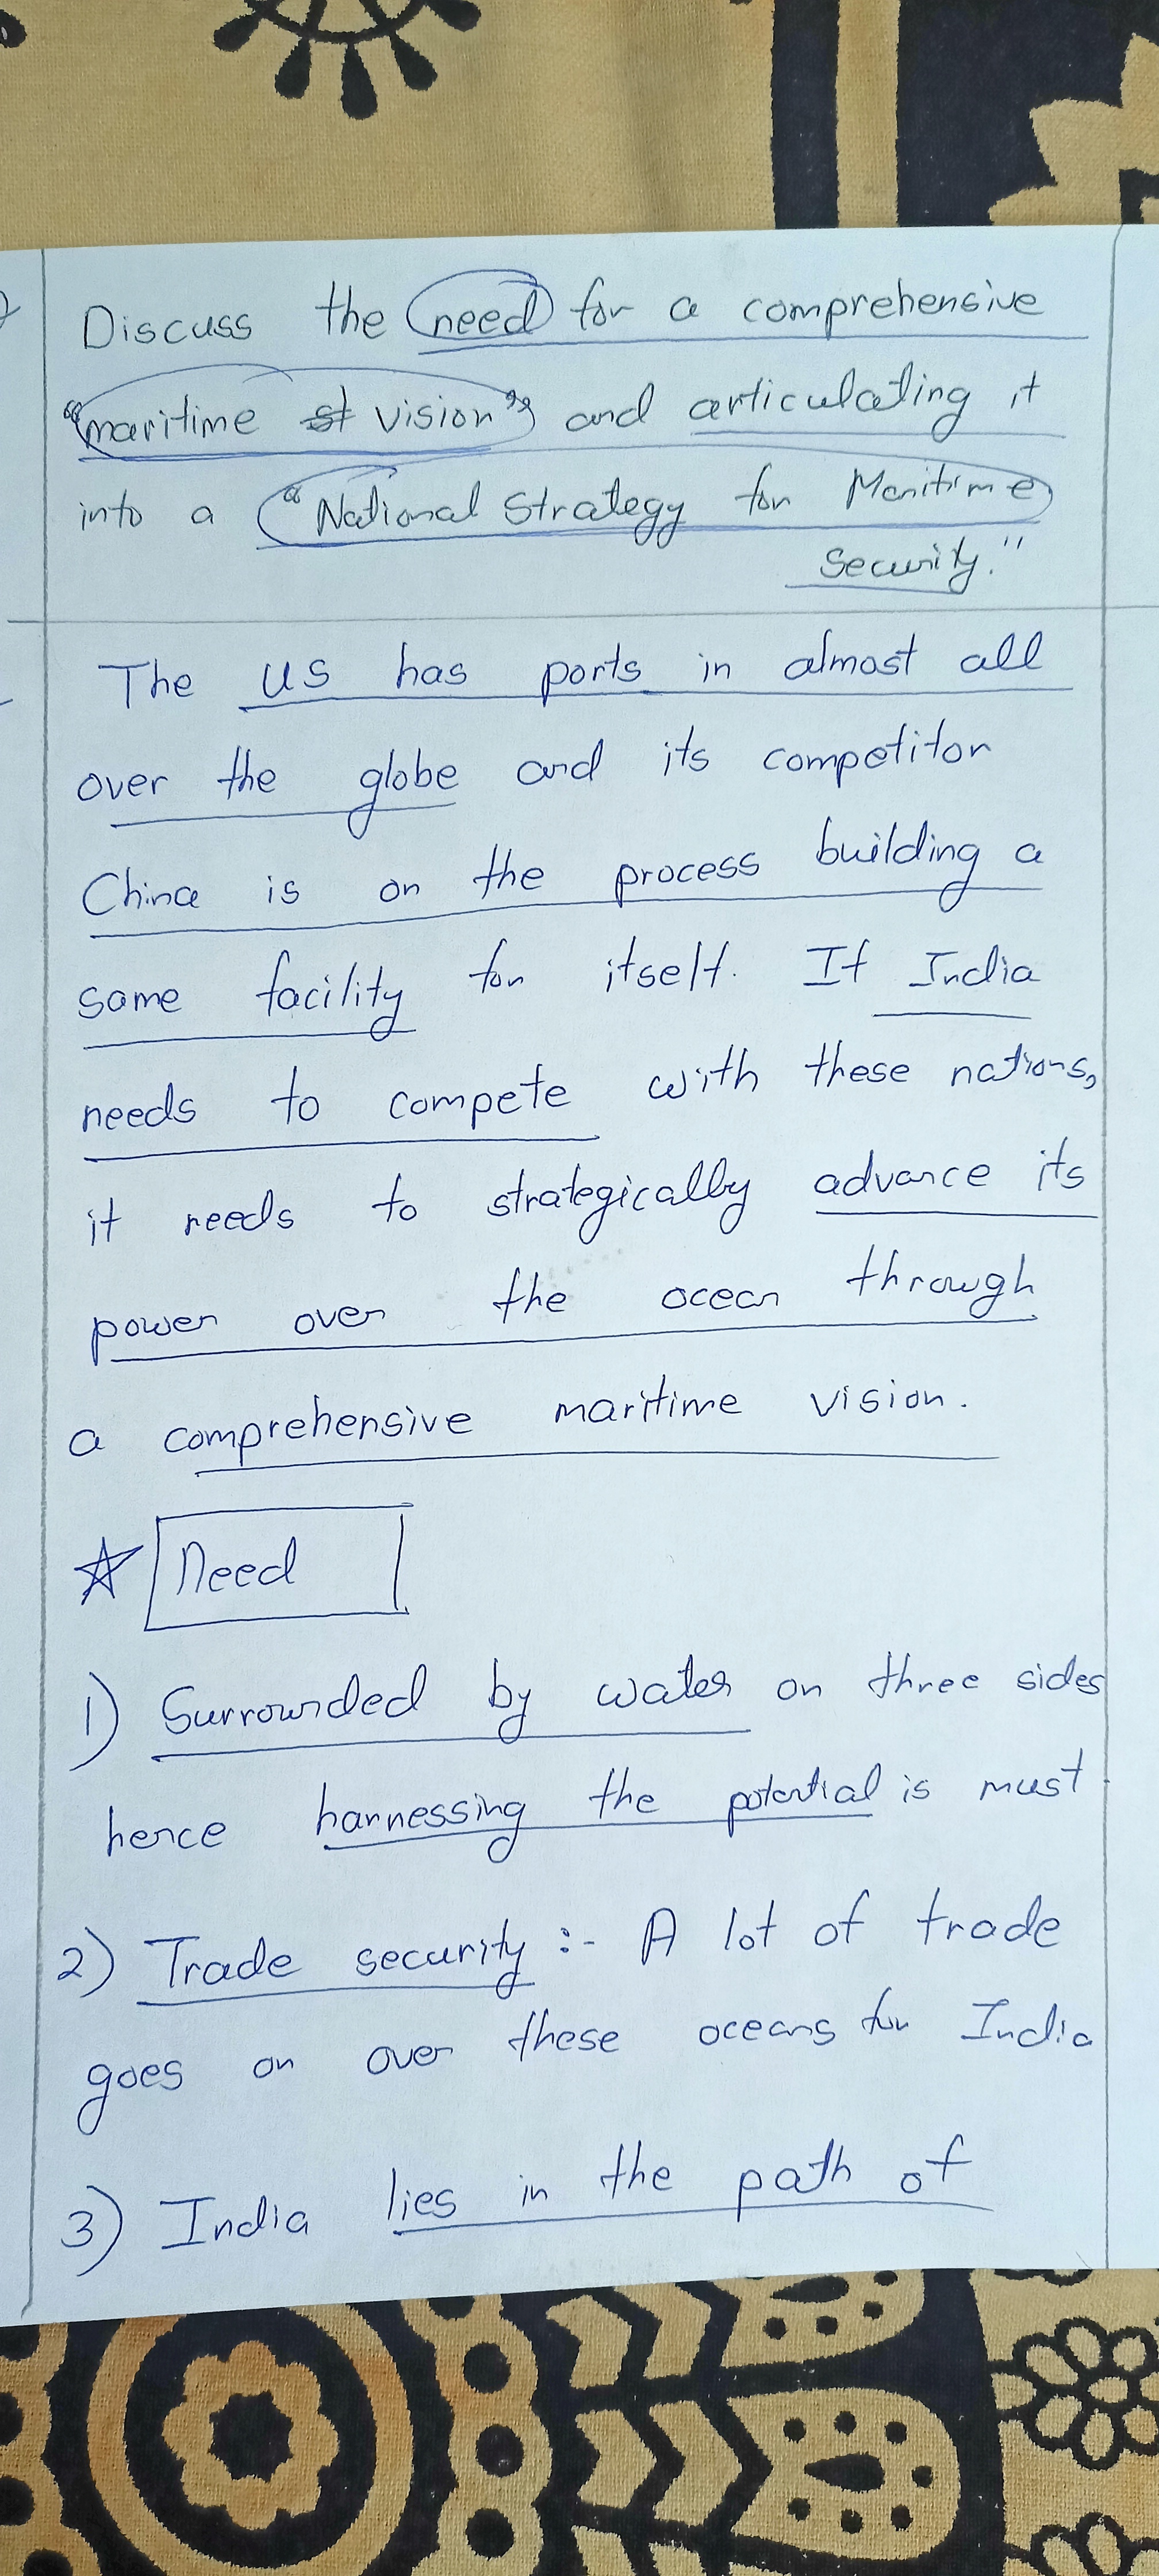 Discuss the need for a comprehensive
"maritime st vision" and articulating it
into a "National Strategy for Maritime
Security."
The US has ports in almost all
over the globe and its competitor
China is on the process building a
same facility for itself. If India
needs to compete with these nations,
it needs to strategically advance its
power over the ocean through
a comprehensive maritime vision.
☆ Need
1) Surrounded by water on three sides
hence harnessing the potential is must.
2) Trade security :- A lot of trade
goes on over these oceans for India
3) India lies in the path of